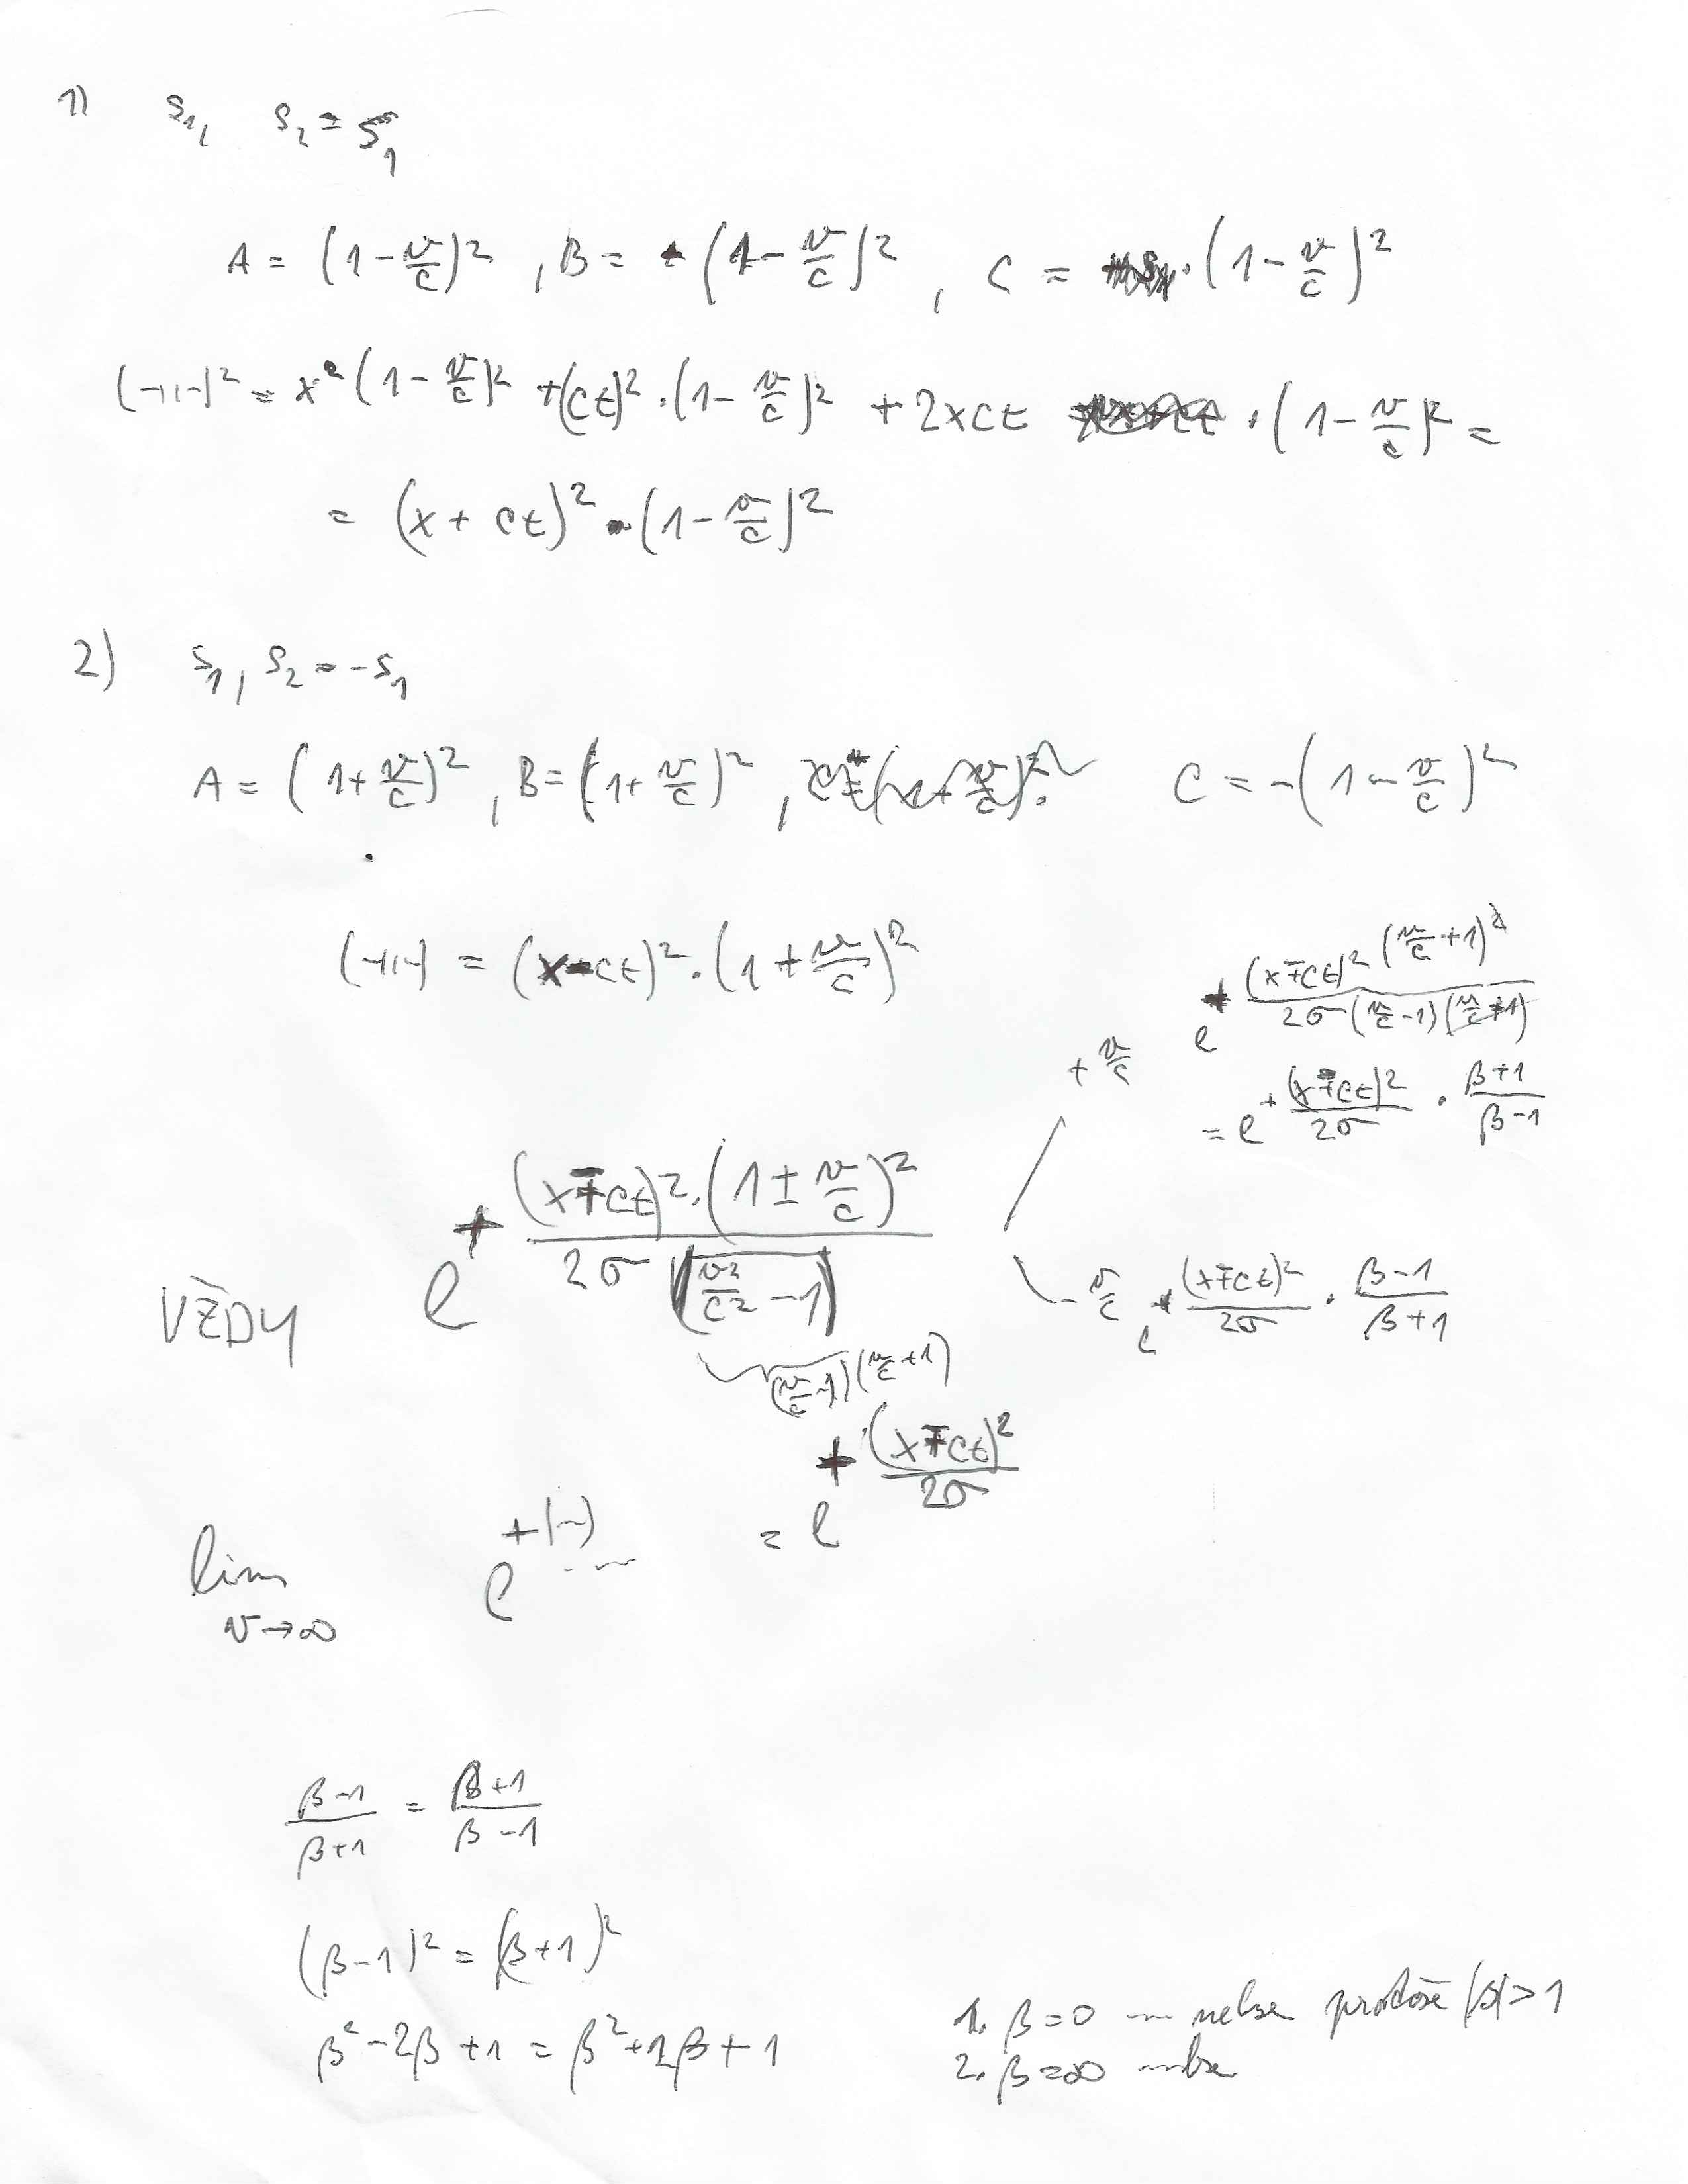 1) s₁, s₂ = s₁
A = (1 - v/c)², B = (1 - v/c)², C = (1 - v/c)²
(-11-)² = x²(1 - v/c)² + (ct)²·(1 - v/c)² + 2xct · (1 - v/c)² =
= (x + ct)²·(1 - v/c)²
2) s₁, s₂ = -s₁
A = (1 + v/c)², B = (1 + v/c)², C = -(1 - v/c)²
(-11-) = (x - ct)²·(1 + v/c)²
+ v/c e^{+ (x∓ct)²(v/c + 1)² / 2σ(v/c - 1)(v/c + 1)}
= e^{+ (x∓ct)²/2σ · (β+1)/(β-1)}
VŽDY e^{+ (x∓ct)²·(1 ± v/c)² / 2σ(v²/c² - 1)}
(v/c - 1)(v/c + 1)
- v/c e^{+ (x∓ct)²/2σ · (β-1)/(β+1)}
lim v→∞ e^{+(~)} = e^{+ (x∓ct)²/2σ}
(β-1)/(β+1) = (β+1)/(β-1)
(β-1)² = (β+1)²
β² - 2β + 1 = β² + 2β + 1
1. β = 0 — nelze protože |β| > 1
2. β = ∞ nelze